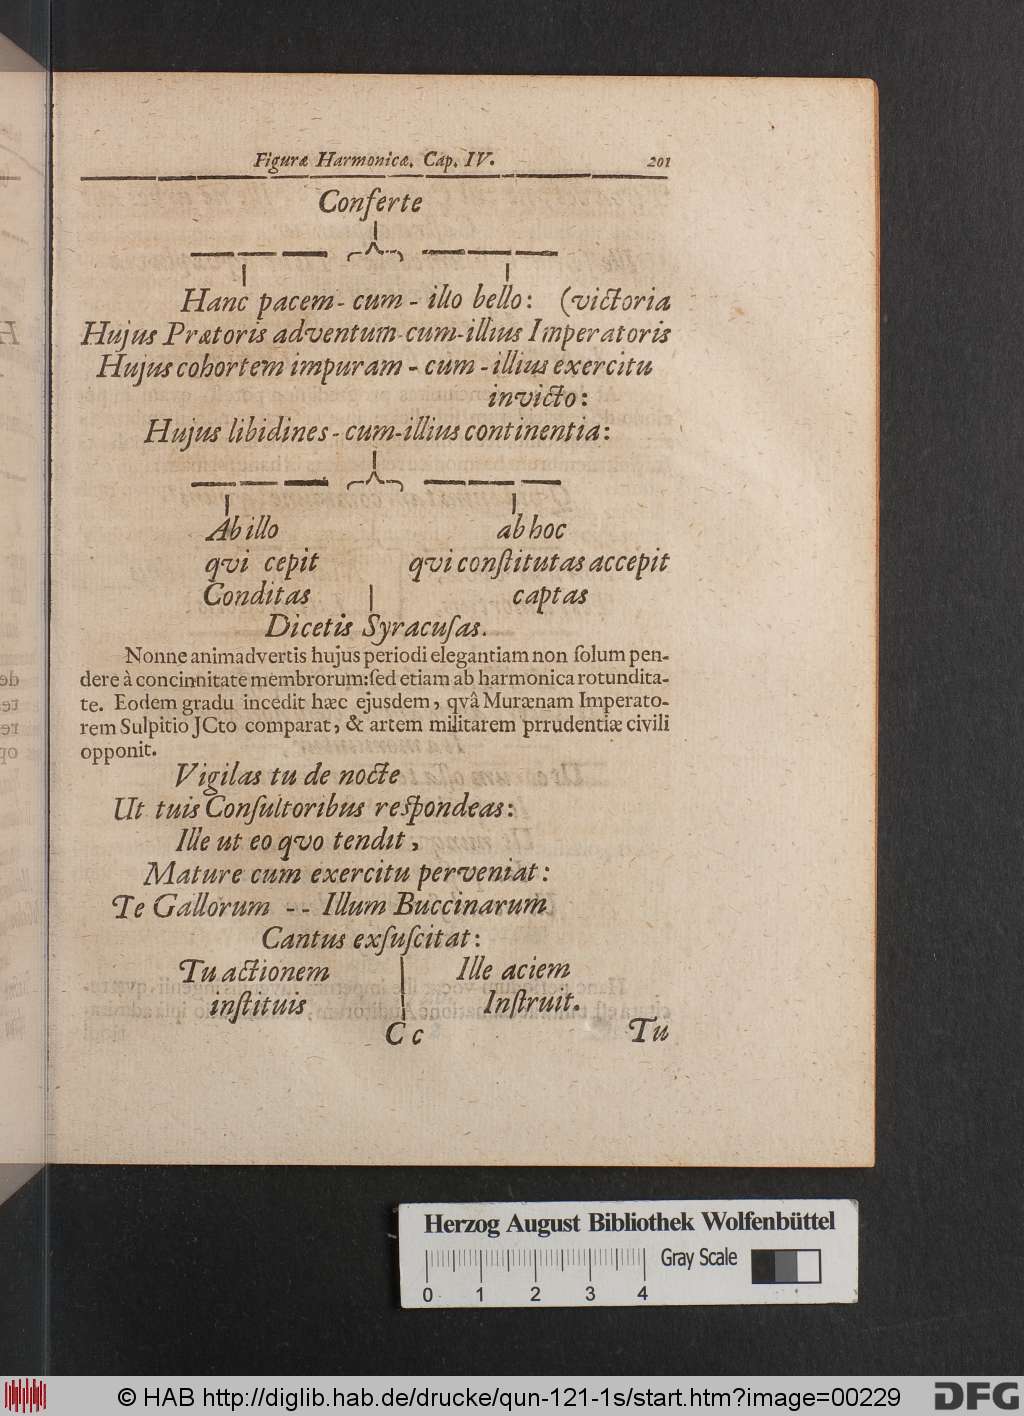 Figuræ Harmonicæ. Cap. IV. 201
Conferte
Hanc pacem - cum - illo bello: (victoria
Hujus Prætoris adventum-cum-illius Imperatoris
Hujus cohortem impuram - cum - illius exercitu
invicto:
Hujus libidines - cum-illius continentia:
Ab illo ab hoc
qvi cepit qvi conſtitutas accepit
Conditas captas
Dicetis Syracuſas.
Nonne animadvertis hujus periodi elegantiam non ſolum pen-
dere à concinnitate membrorum:ſed etiam ab harmonica rotundita-
te. Eodem gradu incedit hæc ejusdem, qvâ Murænam Imperato-
rem Sulpitio JCto comparat, & artem militarem prrudentiæ civili
opponit.
Vigilas tu de nocte
Ut tuis Conſultoribus reſpondeas:
Ille ut eo qvo tendit,
Mature cum exercitu perveniat:
Te Gallorum -- Illum Buccinarum
Cantus exſuſcitat:
Tu actionem Ille aciem
inſtituis Inſtruit.
C c Tu
Herzog August Bibliothek Wolfenbüttel
Gray Scale
0 1 2 3 4
© HAB http://diglib.hab.de/drucke/qun-121-1s/start.htm?image=00229
DFG